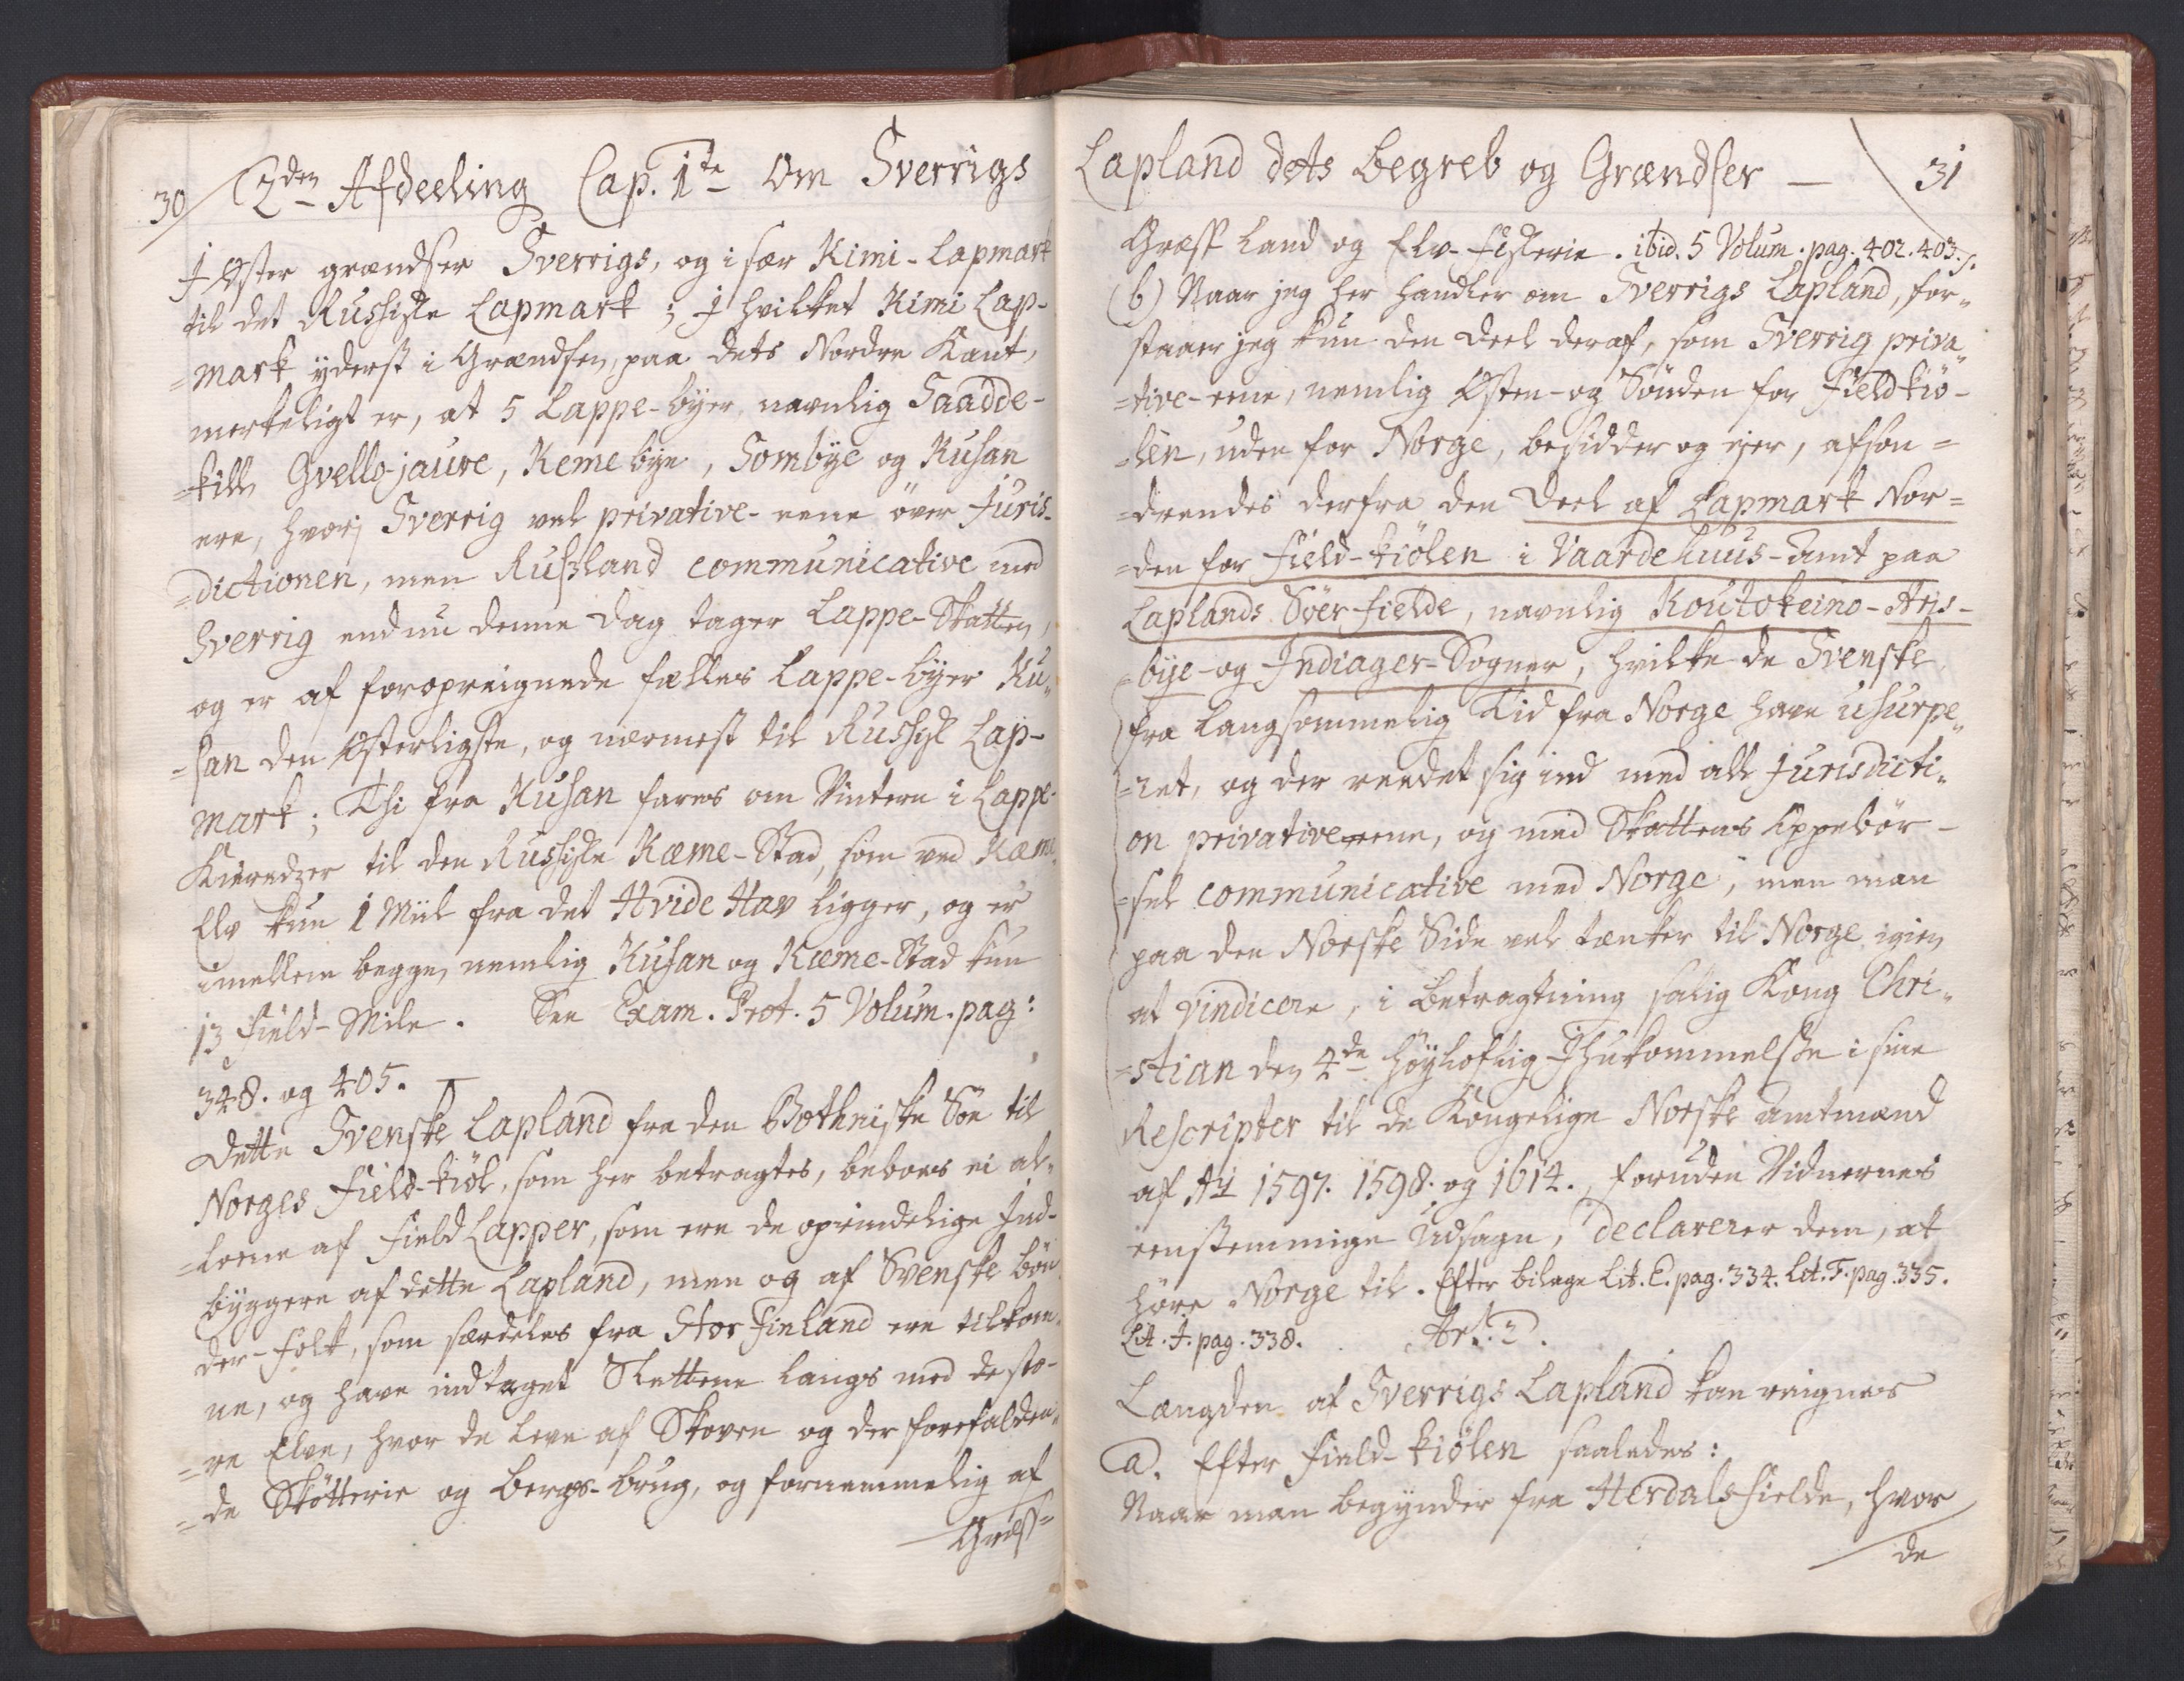 30 2den Afdeeling Cap. 1te Om Sverrigs
J Øster grændser Sverrigs, og i sær Kimi-Lapmark
til det Russiske Lapmark; J hvilket Kimi Lap-
=mark yderst i Grændsen, paa dets Nordre Kant,
merkeligt er, at 5 Lappe-byer, navnlig Saadde-
=kill, Gvellojaure, Keme bye, Sombye og Kusan
ere, hvorj Sverrig vel privative-eene över Juris-
=dictionen, men Rusland communicative med
Sverrig endnu denne Dag tager Lappe-Skatten,
og er af foropreignede fælles Lappe-byer Ku-
=san den Østerligste, og nærmest til Russisk Lap-
mark; Thi fra Kusan fares om Vintern i Lappe-
Kieredzer til den Russiske Kæme-Stad, som ved Kæme
Elv kun 1 Miil fra det Hvide Hav ligger, og er
imellem begge, nemlig Kusan og Kæme-Stad kun
13 Field-Mile. See Exam. Prot. 5 Volum. pag:
348. og 405. —
Dette Svenske Lapland fra den Bothniske Söe til
Norges Field-kiöl, som her betragtes, beboes ei al-
=leene af Field Lapper, som ere de oprindelige Ind-
byggere af dette Lapland, men og af Svenske bön-
der-folk, som særdeles fra Stor Finland ere tilkom-
ne, og have indtaget Slettene langs med de sto-
=re Elve, hvor de leve af Skoven og der forefalden-
=de Skötterie og Bergs-brug, og fornemmelig af
Græss=
Lapland dets begreb og Grændser — 31
Græss Land og Elv-fiskerie. ibid. 5 Volum. pag. 402. 403.
(b) Naar jeg her handler om Sverrigs Lapland, for-
staaer jeg kun den Deel deraf, som Sverrig priva-
=tive-eene, nemlig Østen- og Sönden for Fieldkiö-
=len, uden for Norge, besidder og ejer, afson=
=drendes derfra den Deel af Lapmark Nor=
=den for Field-kiölen i Vaardehuus-Amt paa
Laplands Söer-fielde, navnlig Koutokeino-Aris-
=bye- og Indiager-Sogner, hvilke de Svenske
fra langsommelig Tid fra Norge have usurpe-
=ret, og der reedet sig ind med all Jurisdicti-
on privative eene, og med Skattens Oppebör-
=sel communicative med Norge; men man
paa den Norske Side vel tænker til Norge igien
at vindicere, i Betragtning salig Kong Chri-
=stian den 4de Höylovlig Ihukommelse i sine
Rescripter til de Kongelige Norske Amtmænd
af Ay 1597. 1598. og 1614., foruden Vidnernes
eenstemmige Udsagn, declarerer dem, at
höre Norge til. Efter bilage Lit. E. pag. 334. Lit. F. pag. 335.
Lit. J. pag. 338. Art. 2.
Længden af Sverrigs Lapland kan reignes
a. Efter Field-kiölen saaledes:
Naar man begynder fra Herdalsfielde, hvor
de